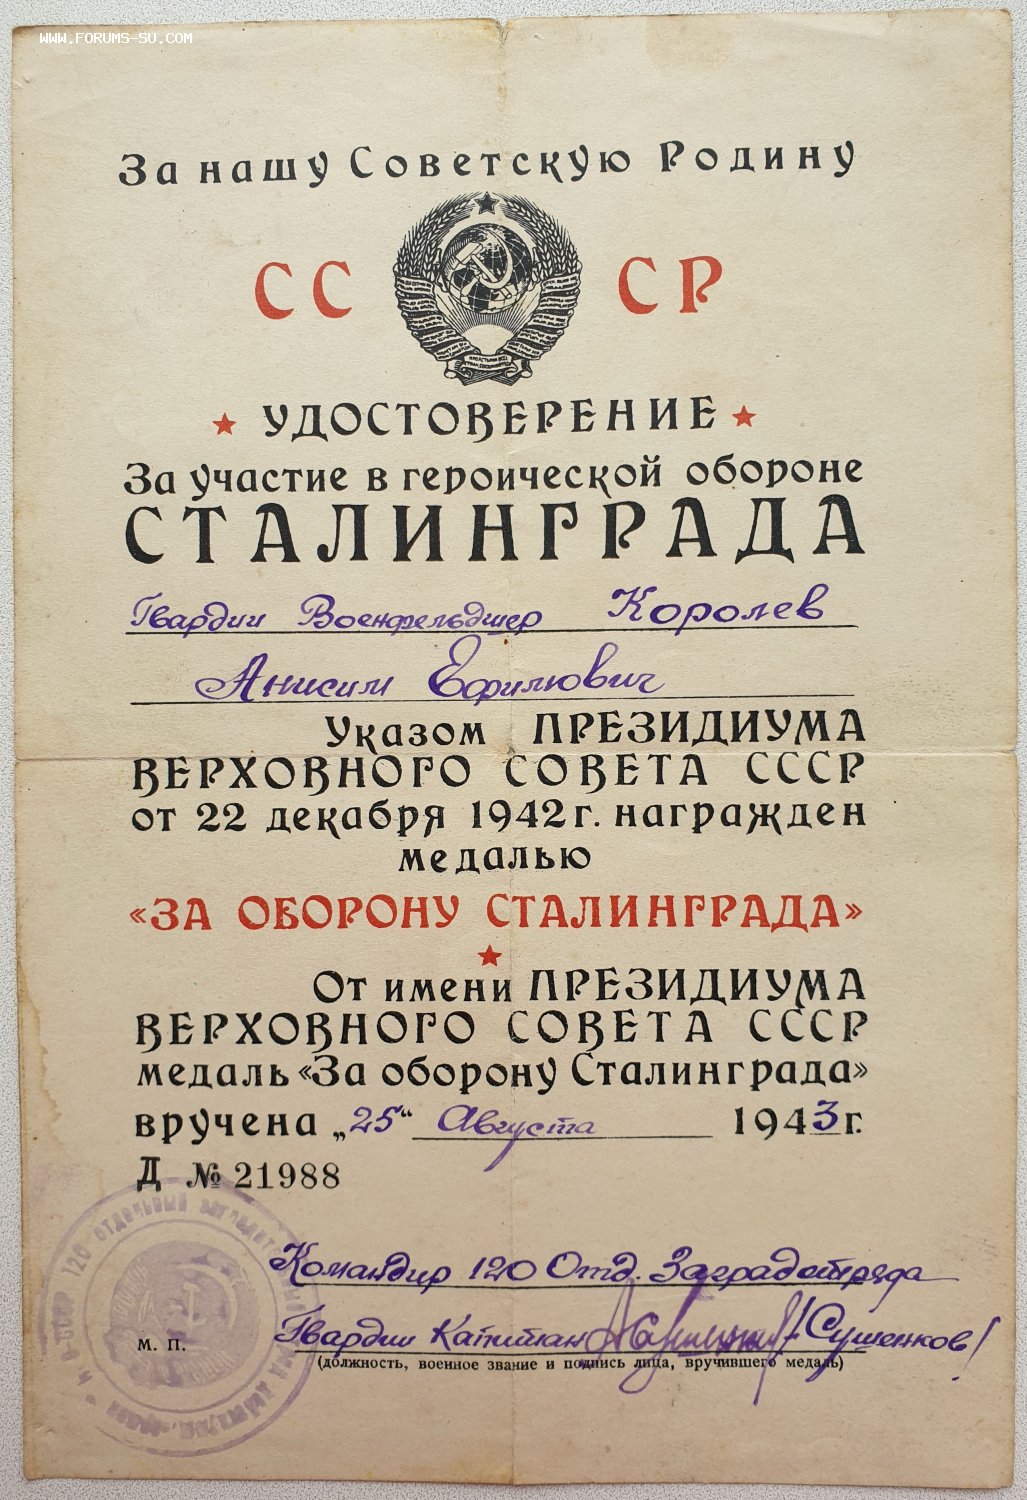 WWW.FORUMS-SU.COM
За нашу Советскую Родину
СС СР
УДОСТОВЕРЕНИЕ
За участие в героической обороне
СТАЛИНГРАДА
Гвардии Военфельдшер Королев
Анисим Ефимович
Указом ПРЕЗИДИУМА
ВЕРХОВНОГО СОВЕТА СССР
от 22 декабря 1942 г. награжден
медалью
«ЗА ОБОРОНУ СТАЛИНГРАДА»
От имени ПРЕЗИДИУМА
ВЕРХОВНОГО СОВЕТА СССР
медаль «За оборону Сталинграда»
вручена „25“ Августа 1943 г.
Д № 21988
120 отдельный
Командир 120 Отд. Заградотряда
М. П. Гвардии Капитан /Сушенков/
(должность, военное звание и подпись лица, вручившего медаль)